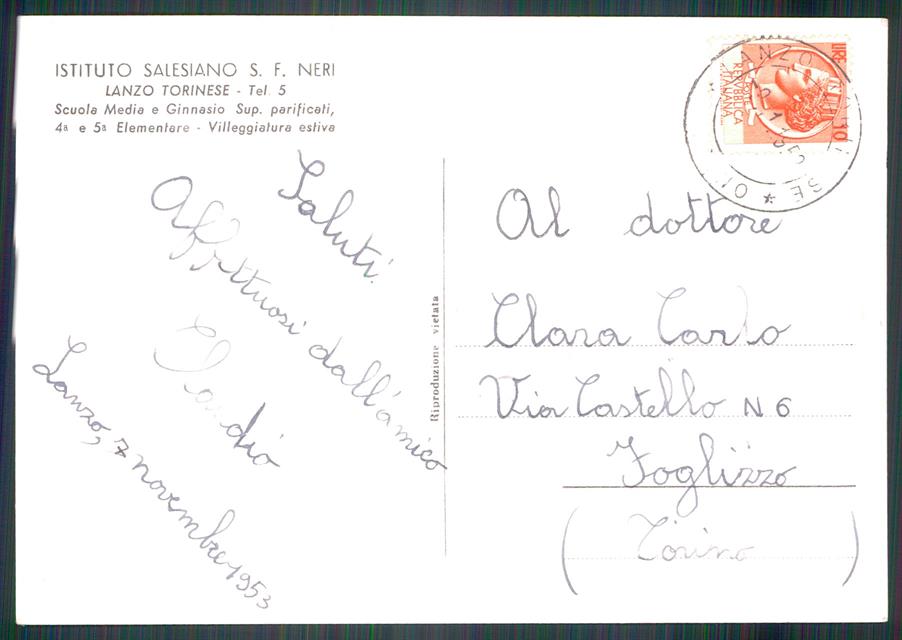 ISTITUTO SALESIANO S. F. NERI
LANZO TORINESE - Tel. 5
Scuola Media e Ginnasio Sup. parificati,
4ª e 5ª Elementare - Villeggiatura estiva
Saluti
Affettuosi dall'amico
Claudio
Lanzo, 7 novembre 1953
Riproduzione vietata
LIRE 10
POSTE
REPVBBLICA
ITALIANA
Al dottore
Clara Carlo
Via Castello N 6
Foglizzo
(Torino)